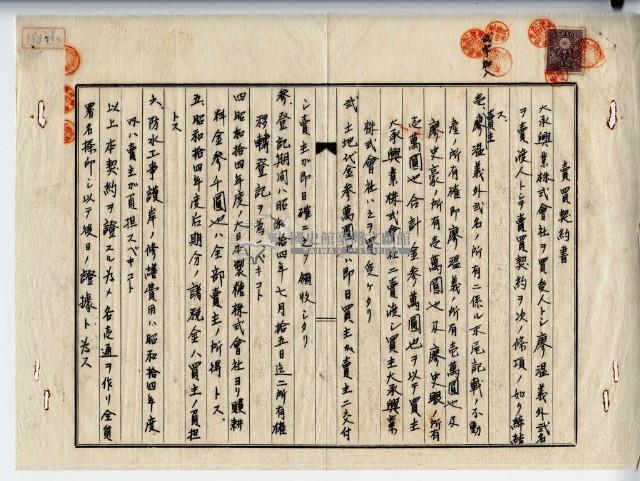 賣買契約書
大承興業株式會社ヲ買受人トシ廖溫義外弐名
ヲ賣渡人トシ賣買契約ヲ次ノ條項ノ如ク締結
ス
壱、賣主廖溫義外弐名ノ所有ニ係ル末尾記載ノ不動
產ノ所有確即廖溫義ノ所有壱萬圓也及
廖史豪ノ所有壱萬圓也及廖史眼ノ所有
壱萬圓也合計金參萬圓也ヲ以テ買主
大承興業株式會社ニ賣渡シ買主大承興業
株式會社ハ之ヲ買受ケタリ
弐、土地代金參萬圓也ハ即日買主ガ賣主ニ交付
シ賣主ガ即日確 領收シタリ
參、登記期間ハ昭 拾四年七月拾五日迄ニ所有權
移轉登記ヲ為 キコト
四、昭和拾四年度ノ大日 製糖株式會社ヨリ贌耕
料金參千圓也ハ全部賣主ノ所得トス、
五、昭和拾四年度后期分ノ諸稅金ハ買主ノ負担
トス
六、防水工事護岸ノ修繕費用ハ昭和拾四年度
以ハ賣主ガ負担スベキコト
以上本契約ヲ證スル為メ各壱通ヲ作リ全員
署名捺印シ以テ後日ノ證據ト為ス